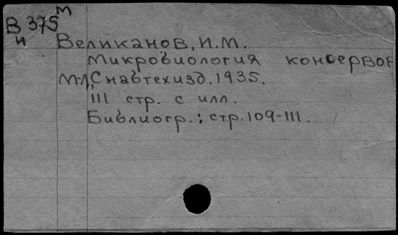 М
В 375
н
Великанов, И.М.
Микробиология консервов
М-Л, Снабтехизд, 1935.
111 стр. с илл.
Библиогр.: стр. 109-111.